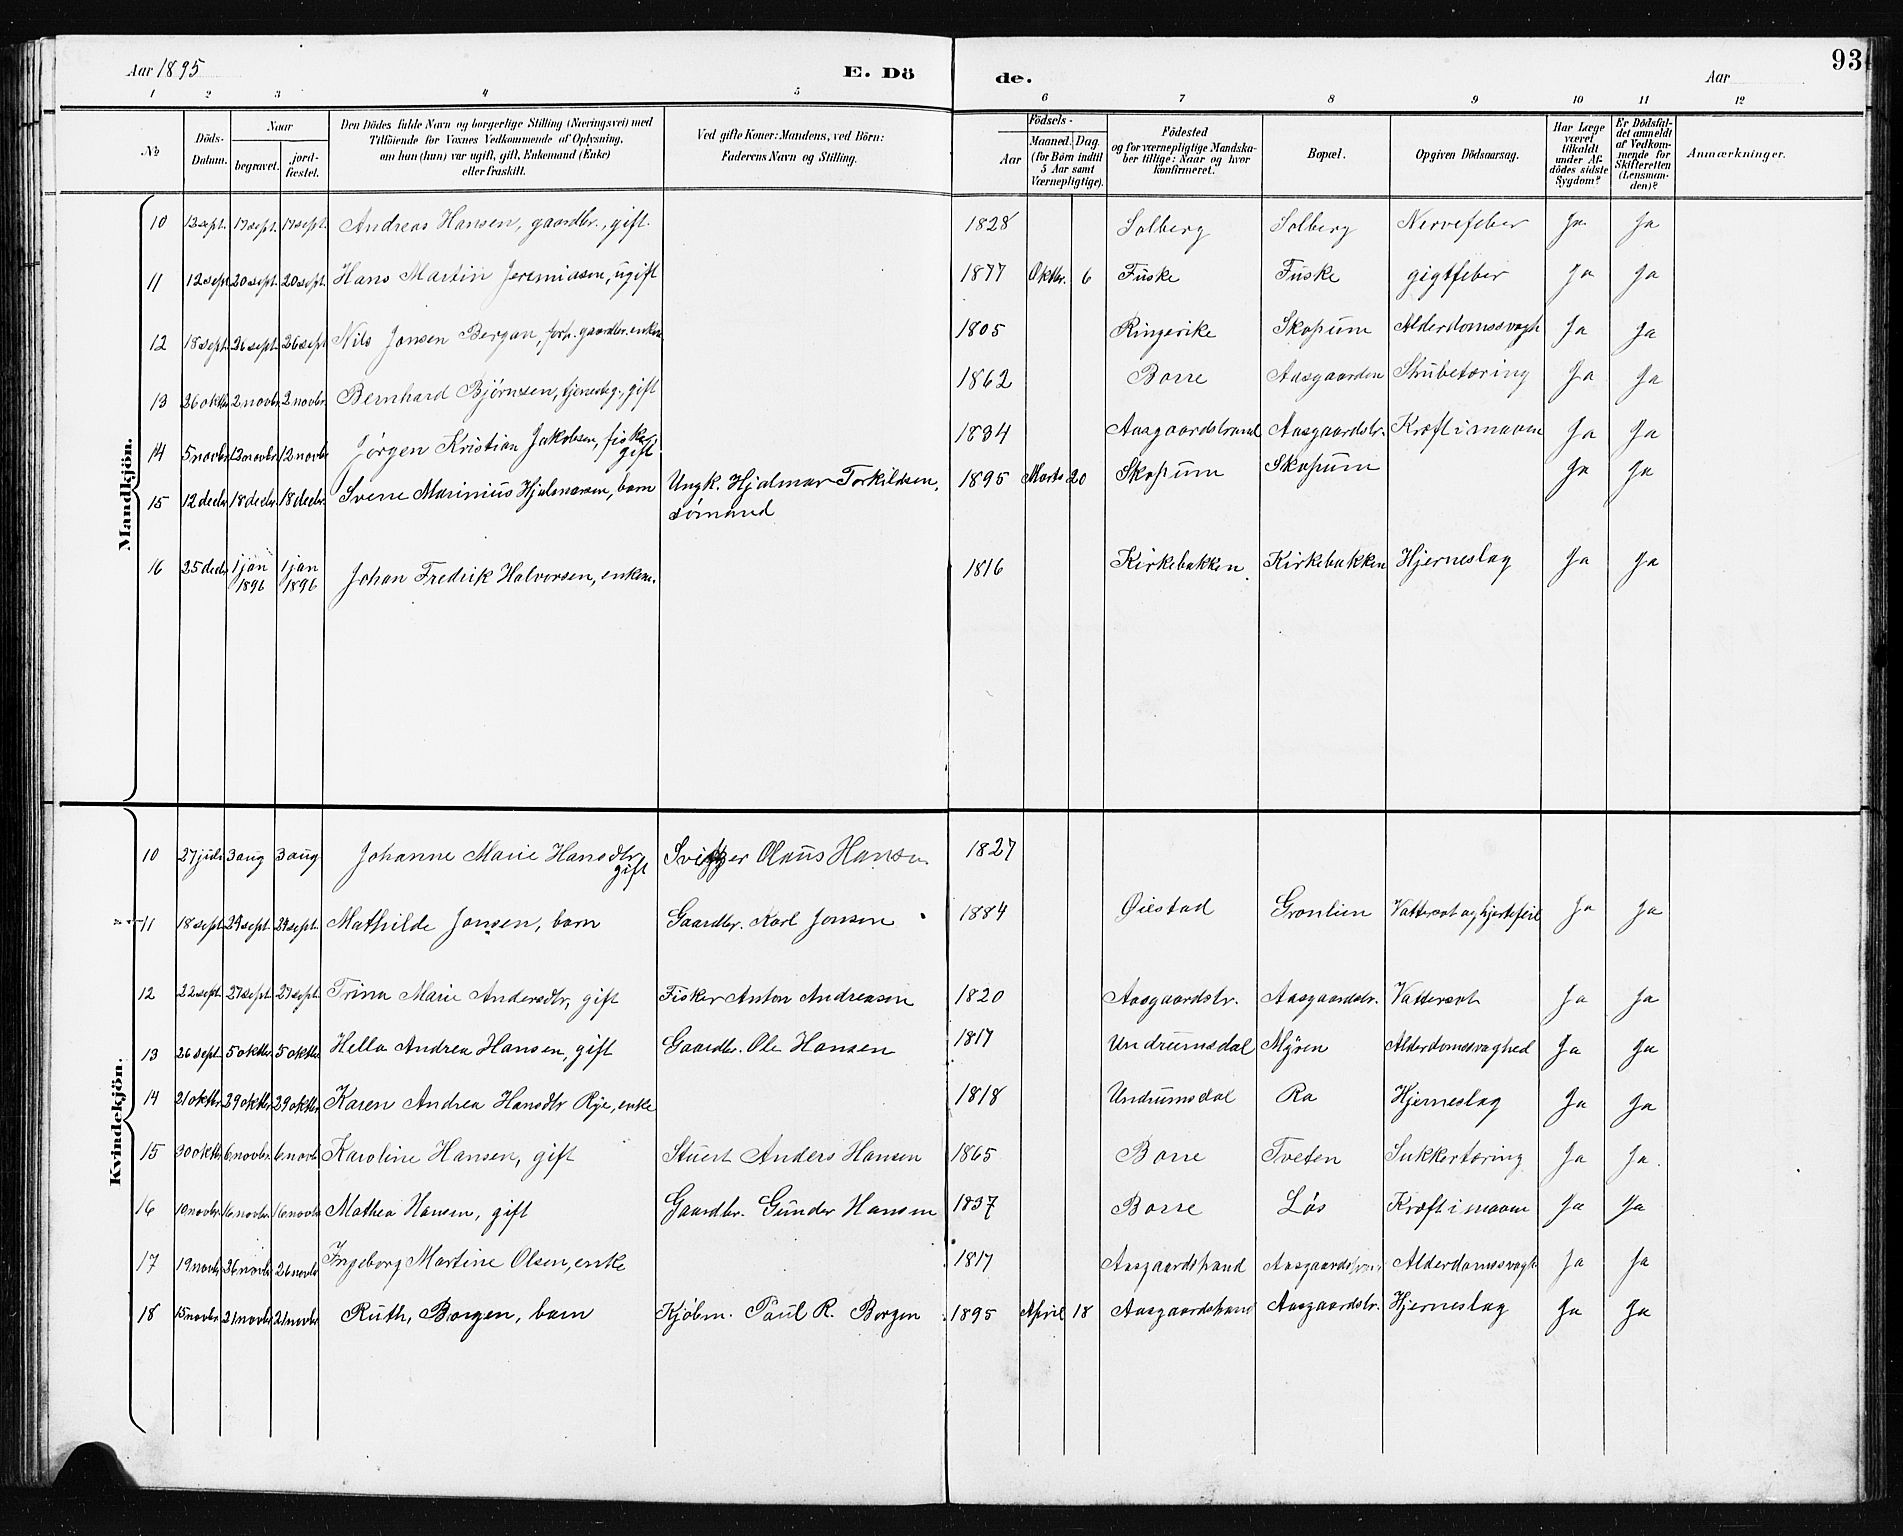 Aar 1895
E. Dö
de.
Aar
93
1 2 3 4 5 6 7 8 9 10 11 12
No
Döds-Datum.
Naar
begravet.
jord-fæstet.
Den Dödes fulde Navn og borgerlige Stilling (Næringsvei) med
Tilföiende for Voxnes Vedkommende af Oplysning,
om han (hun) var ugift, gift, Enkemand (Enke)
eller fraskilt.
Ved gifte Koner: Mandens, ved Börn:
Faderens Navn og Stilling.
Födsels-
Aar
Maaned. Dag.
(for Börn indtil
5 Aar samt
Værnepligtige).
Födested
og for værnepligtige Mandska-
ber tillige: Naar og hvor
konfirmeret.
Bopæl.
Opgiven Dödsaarsag.
Har Læge
været
tilkaldt
under Af-
dödes sidste
Sygdom?
Er Dödsfal-
det anmeldt
af Vedkom-
mende for
Skifteretten
(Lensman-
den)?
Anmærkninger.
Mandkjön.
10 13 sept. 17 sept. 17 sept. Andreas Hansen, gaardbr., gift. 1828 Solberg Solberg Nervefeber Ja Ja
11 12 sept 20 sept. 20 sept. Hans Martin Jeremiasen, ugift 1877 Oktbr. 6 Fuske Fuske gigtfeber Ja Ja
12 18 sept. 26 sept. 26 sept Nils Jonsen Bergan, forh. gaardbr. enkem 1805 Ringerike Skopum Alderdomssvagh Ja Ja
13 26 oktbr 2 novbr. 2 novbr. Bernhard Bjørnsen, tjenesteg., gift 1862 Borre Aasgaarden Strubetæring Ja Ja
14 5 novbr 12 novbr. 12 novbr Jørgen Kristian Jakobsen, fisker gift 1834 Aasgaardstrand Aasgaardstr. Kræft i maven Ja Ja
15 12 decbr 18 decbr. 18 decbr. Sverre Marinius Hjalmarsen, barn Ungk. Hjalmar Torkildsen, 1895 Marts 20 Skopum Skopum Ja Ja
sømand
16 25 decbr 1 jan 1896 1 jan 1896 Johan Fredrik Halvorsen, enkem. 1816 Kirkebakken Kirkebakken Hjerneslag Ja Ja
Kvindekjön.
10 27 juli 3 aug 3 aug Johanne Marie Hansdtr, gift Olaus Hansen 1827
11 18 sept 24 sept. 24 sept. Mathilde Jonsen, barn Gaardbr. Karl Jonsen 1884 Øiestad Grønlien Vattersot og hjertefeil Ja Ja
12 22 sept 27 sept. 27 sept. Trina Marie Andersdtr, gift Fisker Anton Andreasen 1820 Aasgaardstr. Aasgaardstr. Vattersot Ja Ja
13 26 sept 5 oktbr 5 oktbr Hella Andrea Hansen, gift Gaardbr. Ole Hansen 1817 Undrumsdal Myren Alderdomssvaghed Ja Ja
14 21 oktbr. 29 oktbr 29 oktbr. Karen Andrea Hansdtr Rye, enke 1818 Undrumsdal Ra Hjerneslag Ja Ja
15 30 oktbr. 6 novbr. 6 novb Karoline Hansen, gift Stuert Anders Hansen 1865 Borre Tveten Sukkertæring Ja Ja
16 10 novbr. 16 novbr. 16 novbr Mathea Hansen, gift Gaardbr. Gunder Hansen 1837 Borre Løs Kræft i maven Ja Ja
17 19 novbr 26 novbr 26 novbr Ingeborg Martine Olsen, enke 1817 Aasgaardstrand Aasgaardstrand Alderdomssvagh Ja Ja
18 15 novbr. 21 novbr 21 novbr. Ruth, Borgen, barn Kjøbm. Paul R. Borgen 1895 April 18 Aasgaardstrand Aasgaardstr. Hjerneslag Ja Ja